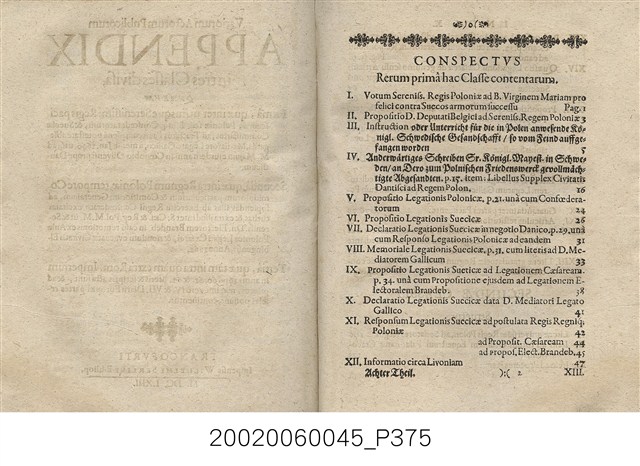 CONSPECTVS
Rerum primâ hac Classe contentarum.
I. Votum Sereniss. Regis Poloniæ ad B. Virginem Mariam pro
felici contra Suecos armorum successu Pag. 1
II. Propositio D. Deputati Belgici ad Sereniss. Regem Poloniæ 3
III. Instruction oder Unterricht für die in Polen anwesende Kö-
nigl. Schwedische Gesandschafft / so vom Feind auffge-
fangen worden 5
IV. Anderwärtiges Schreiben Sr. Königl. Mayest. in Schwe-
den / an Dero zum Polnischen Friedenswerck gevollmäch-
tigte Abgesandten. p. 15. item: Libellus Supplex Civitatis
Dantisci ad Regem Polon. 16
V. Propositio Legationis Polonicæ, p. 21. unà cum Confœdera-
torum 24
VI. Propositio Legationis Suecicæ 26
VII. Declaratio Legationis Suecicæ in negotio Danico, p. 29. unà
cum Responso Legationis Polonicæ ad eandem 31
VIII. Memoriale Legationis Suecicæ p. 31. cum literis ad D. Me-
diatorem Gallicum 33
IX. Propositio Legationis Sueticæ ad Legationem Cæsaream.
p. 34. unà cum Propositione ejusdem ad Legationem E-
lectoralem Brandeb. 38
X. Declaratio Legationis Suecicæ data D. Mediatori Legato
Gallico 41
XI. Responsum Legationis Suecicæ ad postulata Regis Regniq;
Poloniæ 42
ad Proposit. Cæsaream 44
ad propos. Elect. Brandeb. 45
XII. Informatio circa Livoniam 47
Achter Theil. ):( 2 XIII.
20020060045_P375